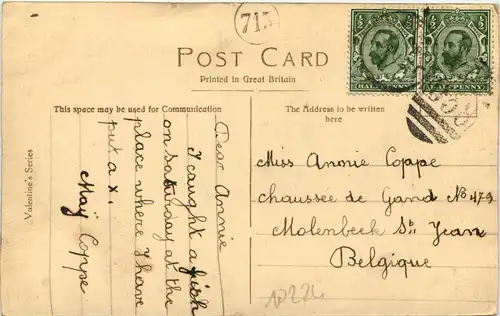 713
POST CARD
Printed in Great Britain
This space may be used for Communication
The Address to be written
here
Valentine's Series
Dear Annie
I caught a fish
on saturday at the
place where I have
put a x.
Maÿ Coppe
HALF PENNY
HALF PENNY
Miss Annie Coppe
chaussee de Gand No 479
Molenbeek St. Jean
Belgique